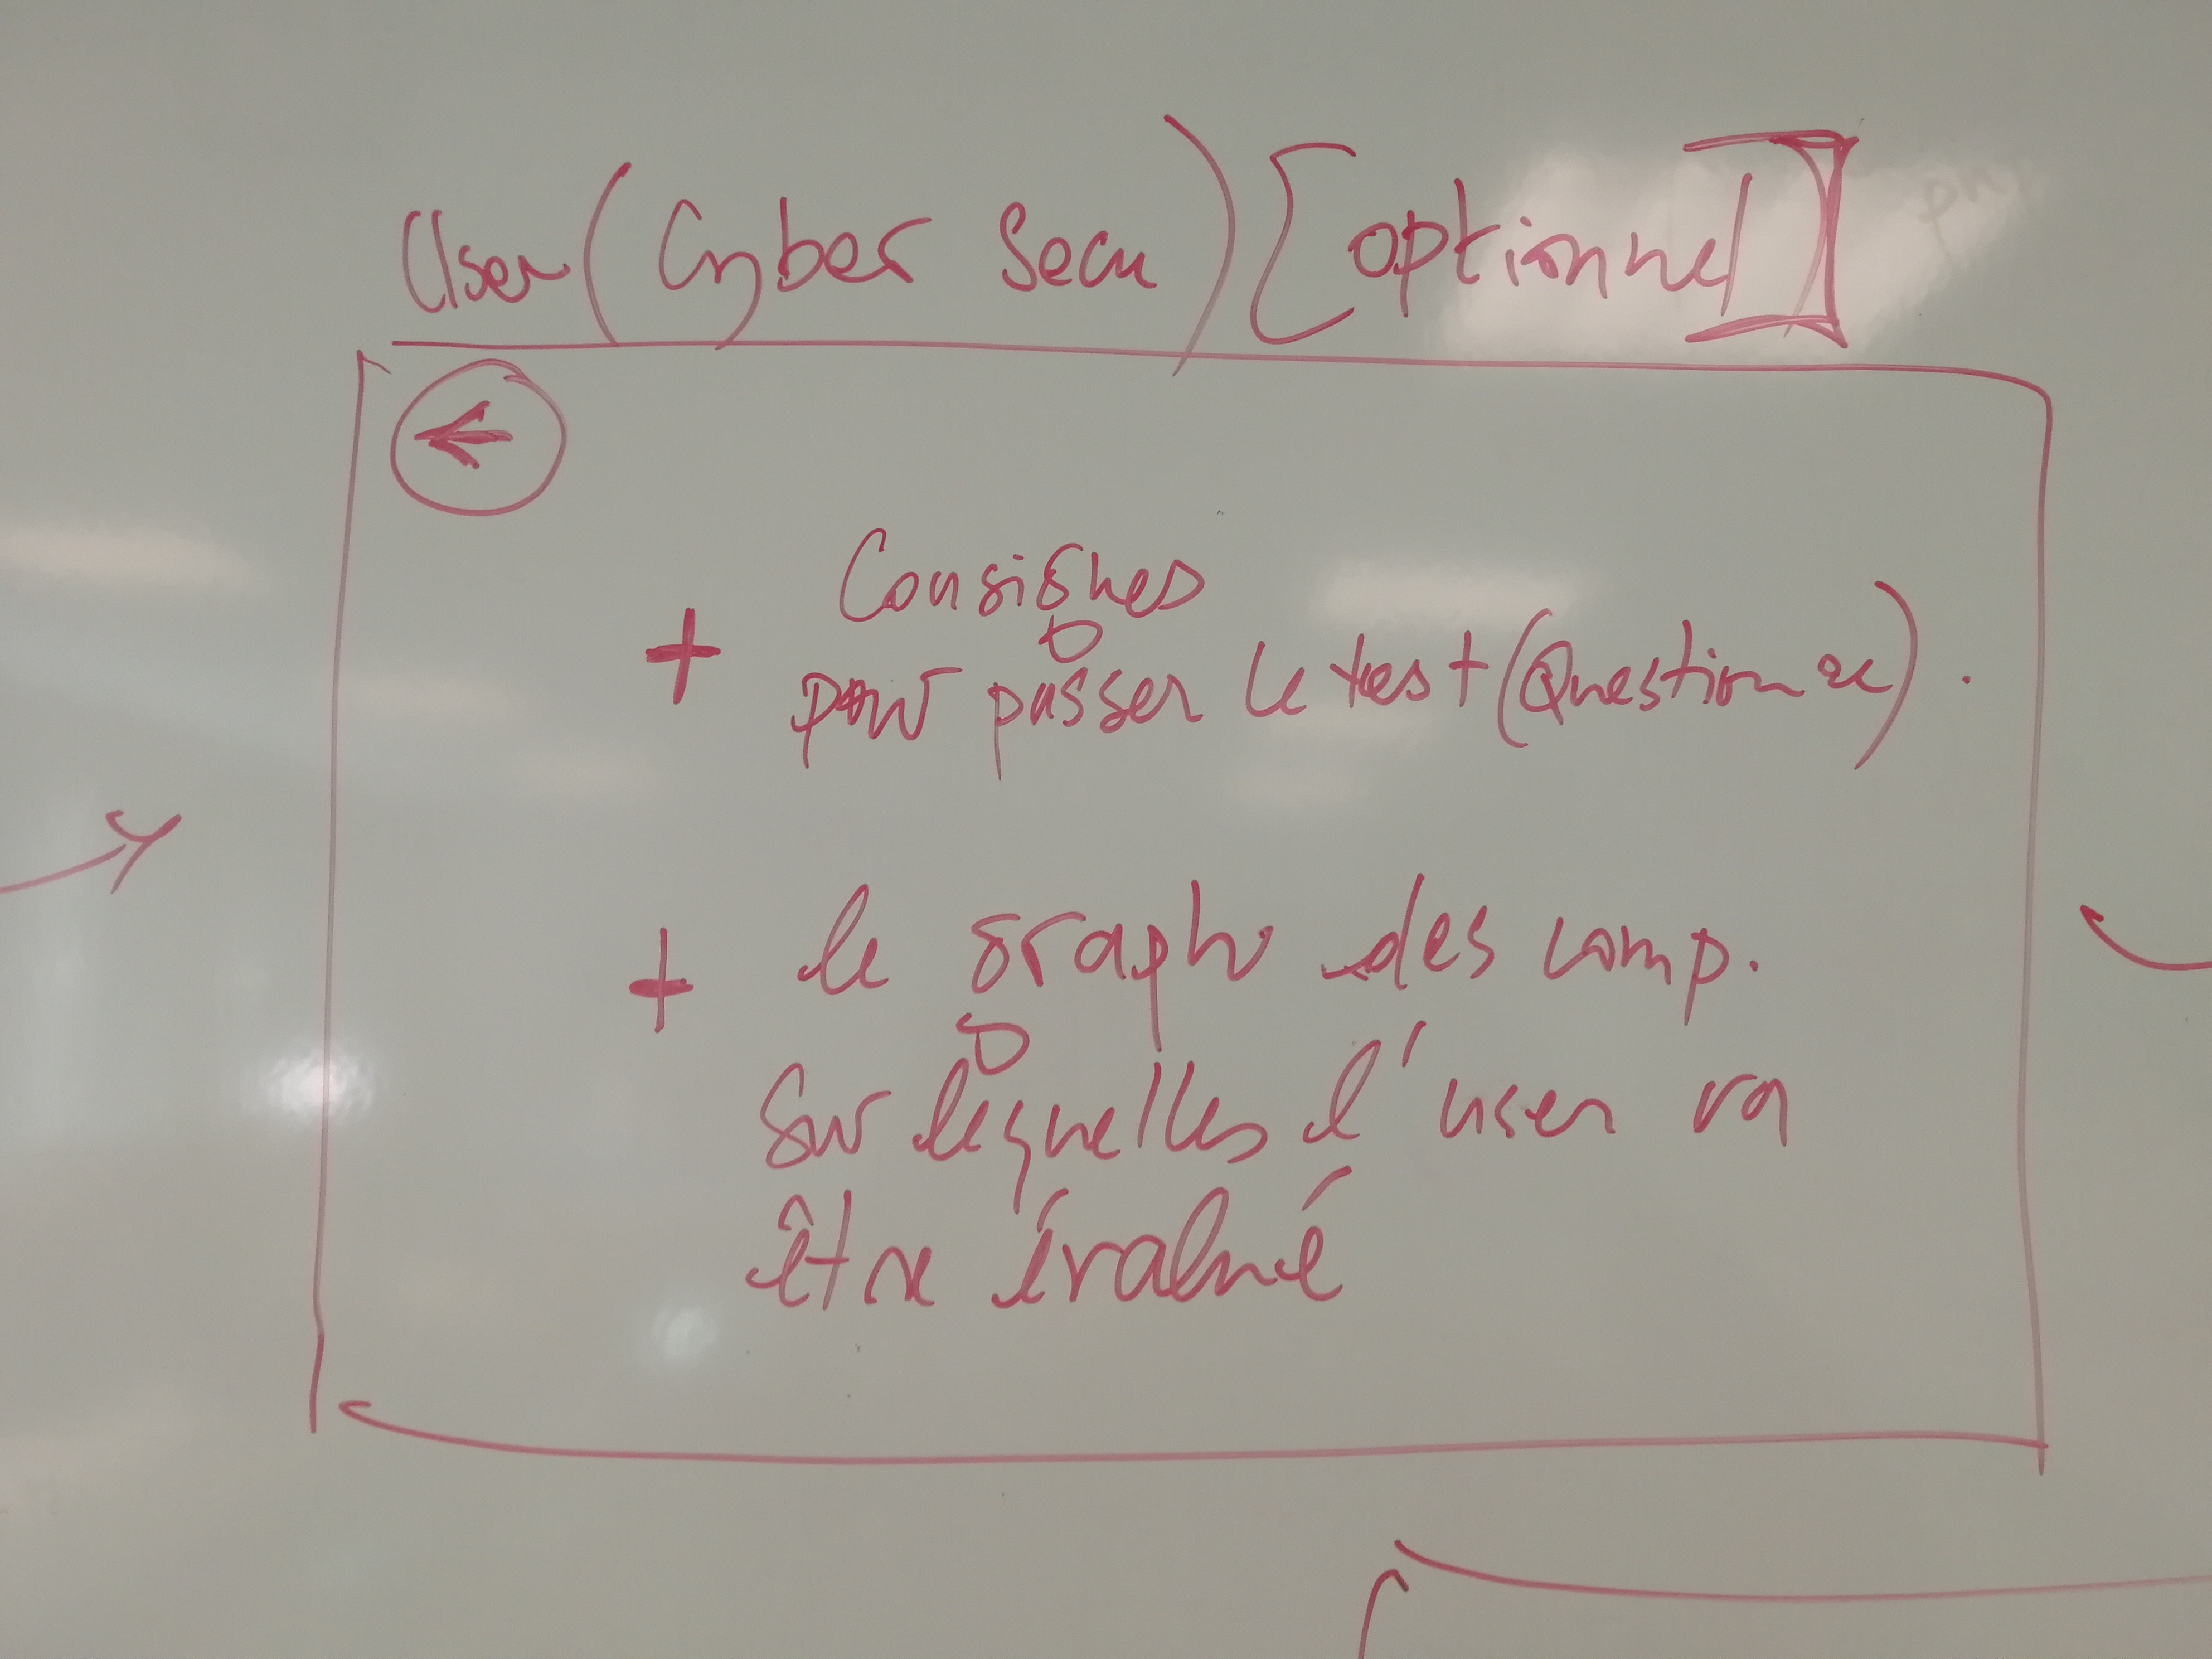 User (Cyber Secu) [optionnel]
←
+ Consignes
pour passer le test (Question re).
+ le graphe des comp.
sur lesquelles l'user va
être évalué